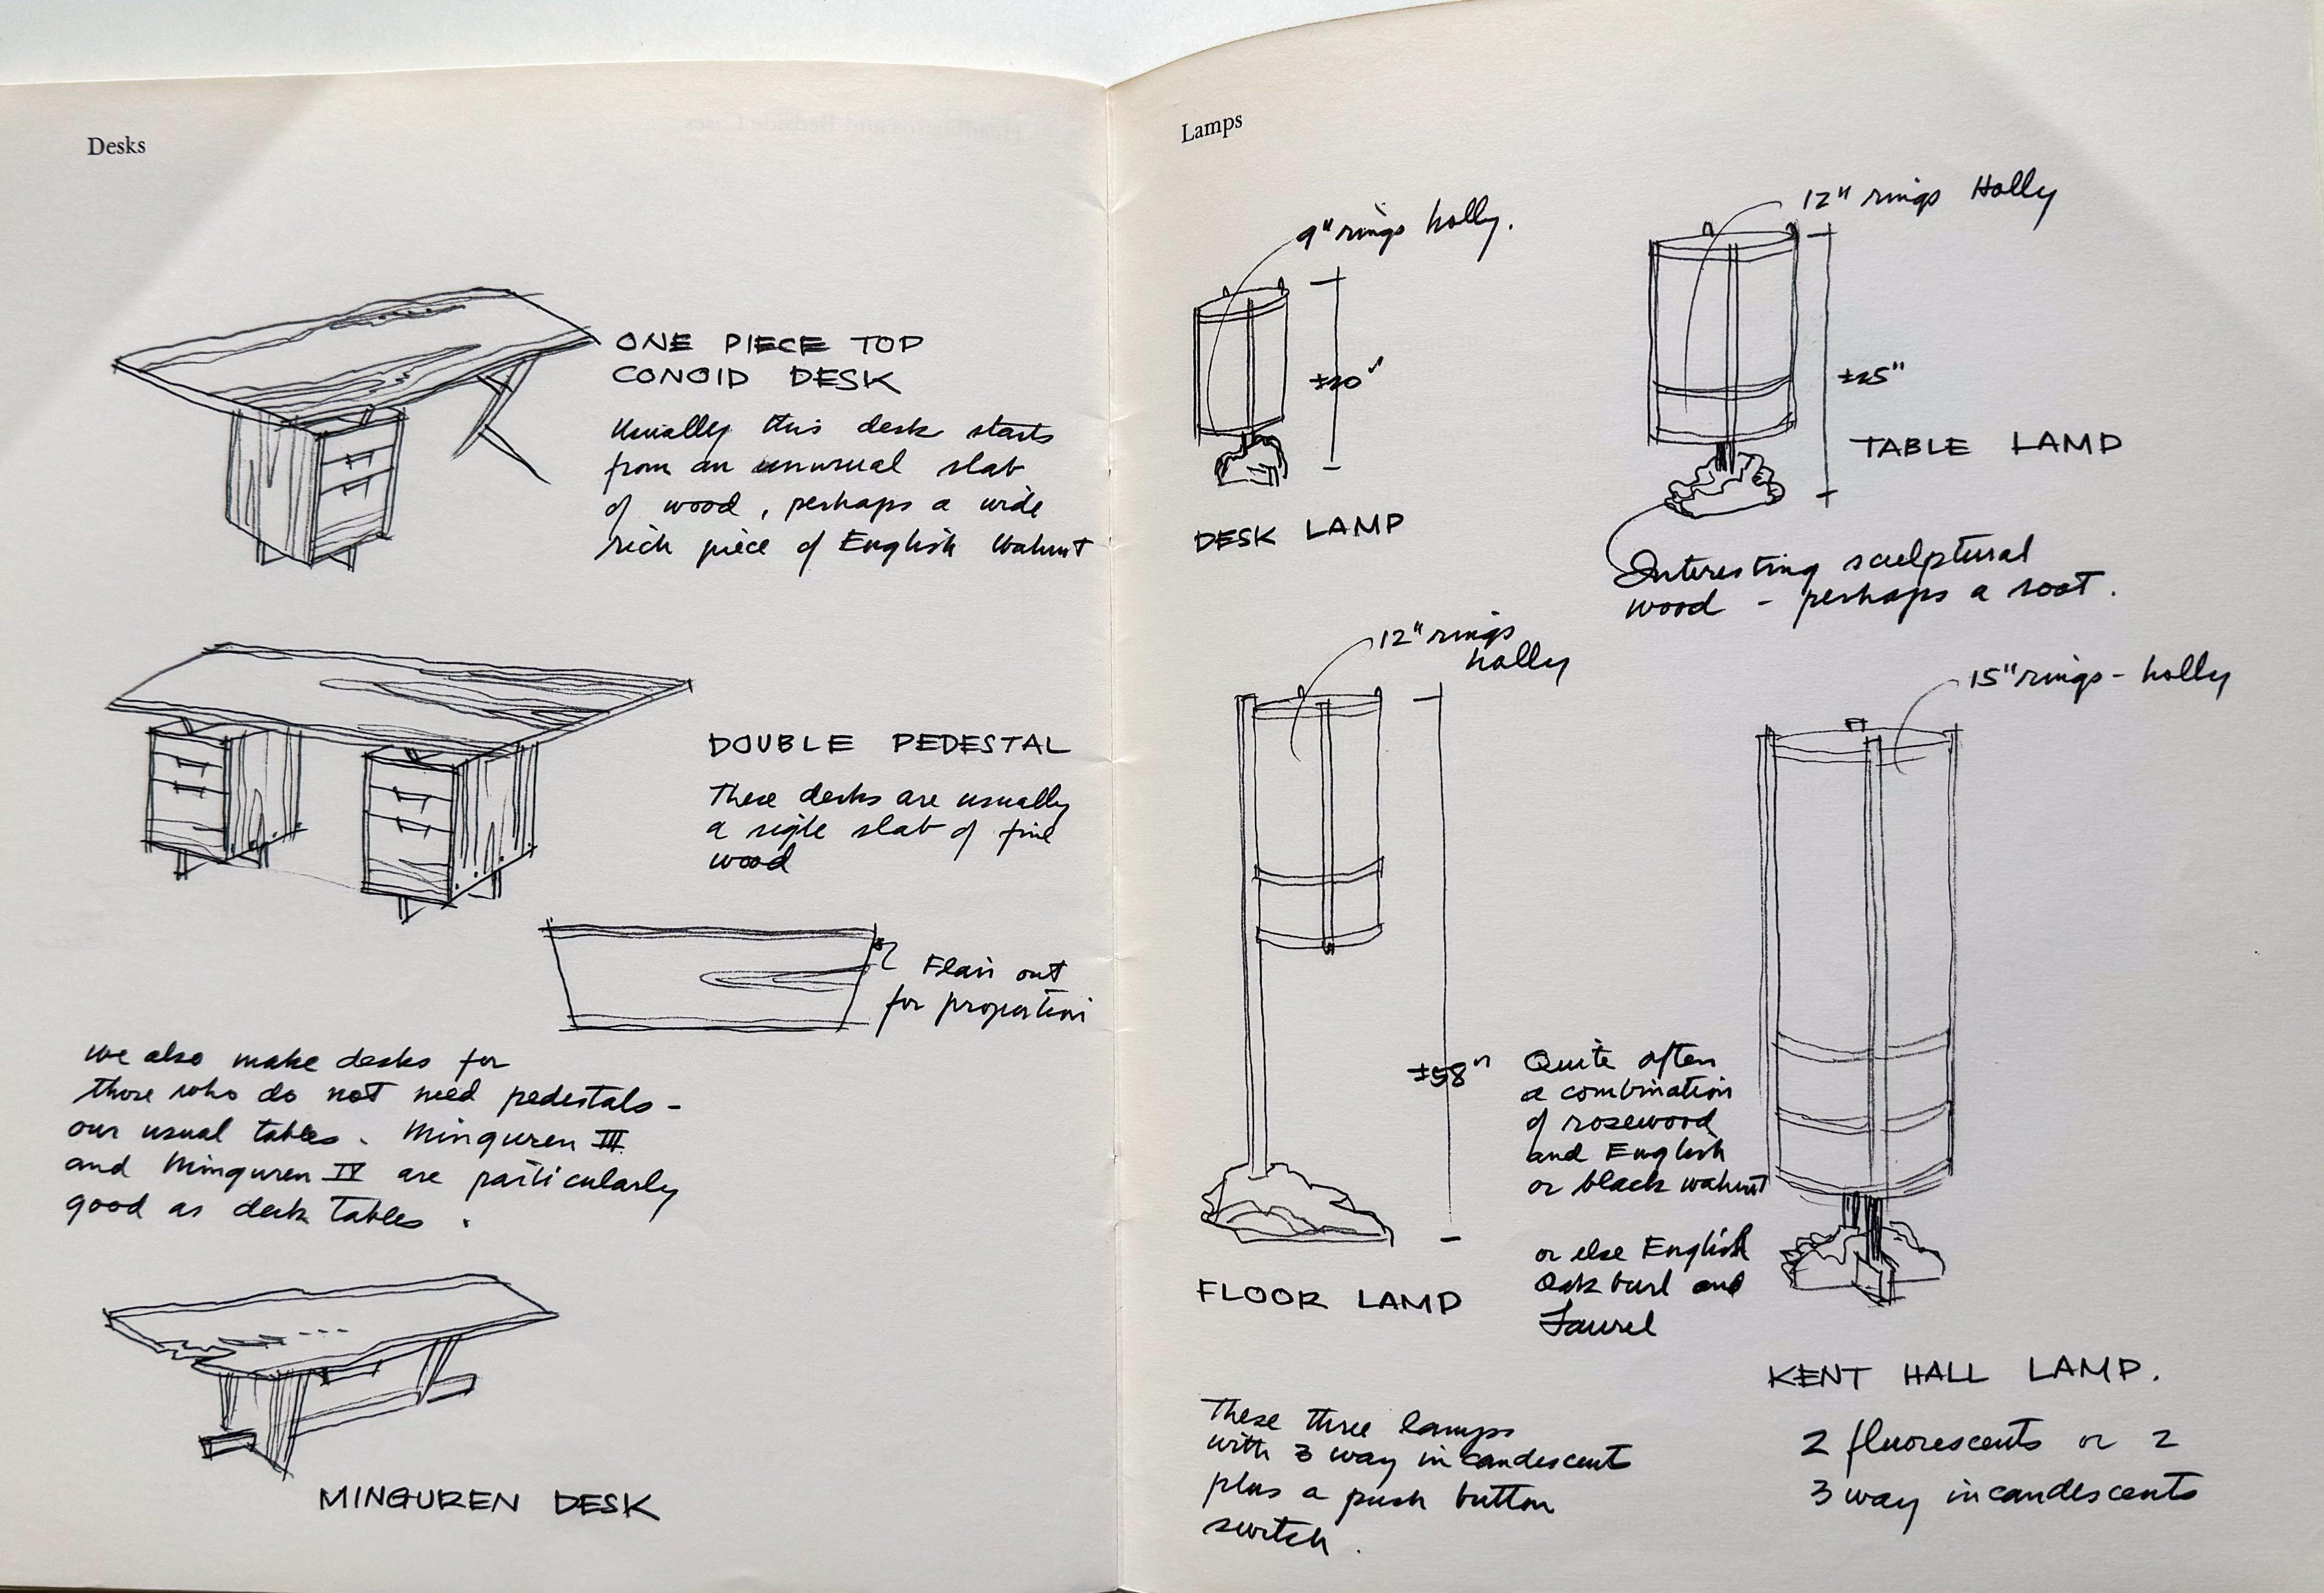 Desks
ONE PIECE TOP
CONOID DESK
Usually this desk starts
from an unusual slab
of wood, perhaps a wide
rich piece of English Walnut
DOUBLE PEDESTAL
These desks are usually
a sigle slab of fine
wood
Flair out
for proportion
We also make desks for
those who do not need pedestals –
our usual tables. Minguren III
and Minguren IV are particularly
good as desk tables.
MINGUREN DESK
Lamps
9" rings holly.
±20"
DESK LAMP
12" rings Holly
±25"
TABLE LAMP
Interesting sculptural
wood – perhaps a root.
12" rings
holly
±58"
FLOOR LAMP
15" rings – holly
Quite often
a combination
of rosewood
and English
or black walnut
or else English
Oak burl and
Laurel
KENT HALL LAMP.
2 fluorescents or 2
3 way incandescents
These three lamps
with 3 way incandescent
plus a push button
switch.